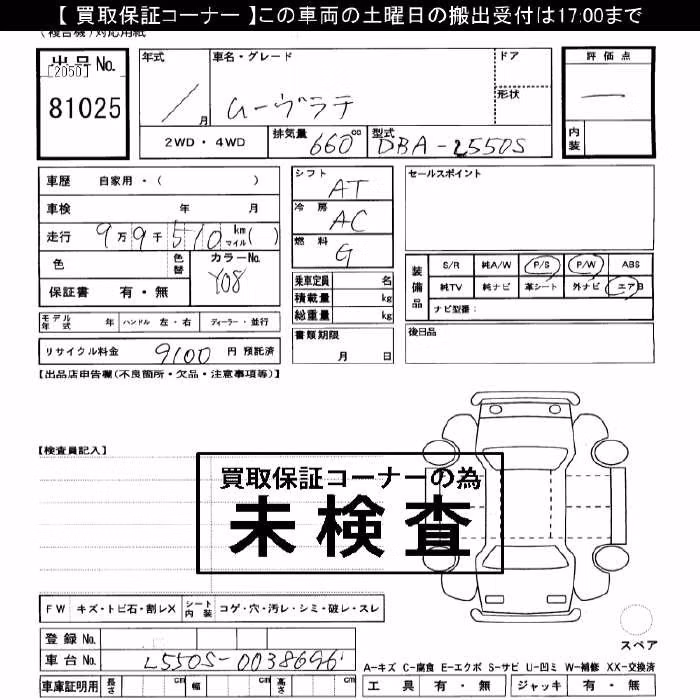 【 買取保証コーナー 】この車両の土曜日の搬出受付は17:00まで
(複合機)対応用紙
出品No.
[2050]
81025
年式
／月
車名・グレード
ムーヴラテ
ドア
形状
評価点
―
内装
2WD・4WD
排気量 660cc
型式 DBA-L550S
車歴 自家用・( )
車検 年 月
走行 9万9千510km マイル( )
色
色替
カラーNo. Y08
保証書 有・無
モデル年式 年 ハンドル 左・右 ディーラー・並行
リサイクル料金 9100 円 預託済
シフト AT
冷房 AC
燃料 G
乗車定員 名
積載量 kg
総重量 kg
書類期限
月 日
セールスポイント
装備品
S/R 純A/W P/S P/W ABS
純TV 純ナビ 革シート 外ナビ エアB
ナビ型番:
後日品
【出品店申告欄(不良箇所・欠品・注意事項等)】
【検査員記入】
買取保証コーナーの為
未検査
FW キズ・トビ石・割レX シート内装 コゲ・穴・汚レ・シミ・破レ・スレ
登録No.
車台No. L550S-0038696
車庫証明用 長さ cm 幅 cm 高さ cm
スペア
A-キズ C-腐食 E-エクボ S-サビ U-凹ミ W-補修 XX-交換済
工具 有・無 ジャッキ 有・無